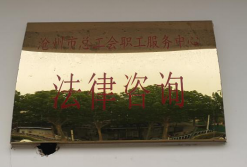 市总工会职工服务中心
法律咨询